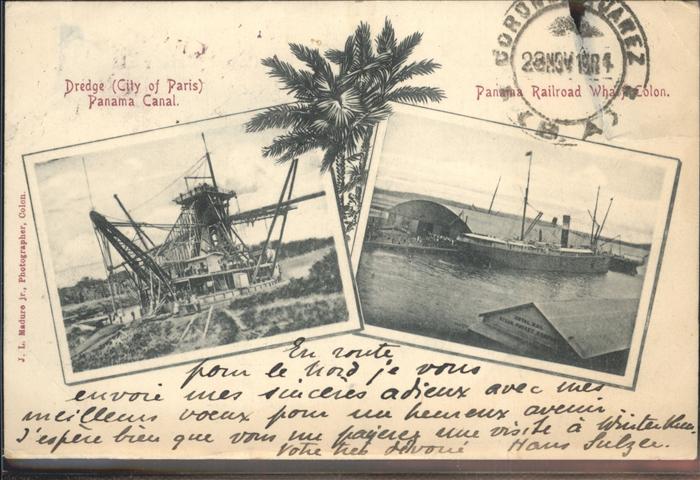 Dredge (City of Paris)
Panama Canal.
Panama Railroad Wharf, Colon.
28 NOV 1904
J. L. Maduro jr., Photographer, Colon.
ROYAL MAIL
STEAM PACKET
En route
pour le Nord je vous
envoie mes sincères adieux avec mes
meilleurs voeux pour un heureux avenir.
J'espère bien que vous me payerez une visite à Winterthur.
Votre très dévoué Hans Sulzer.